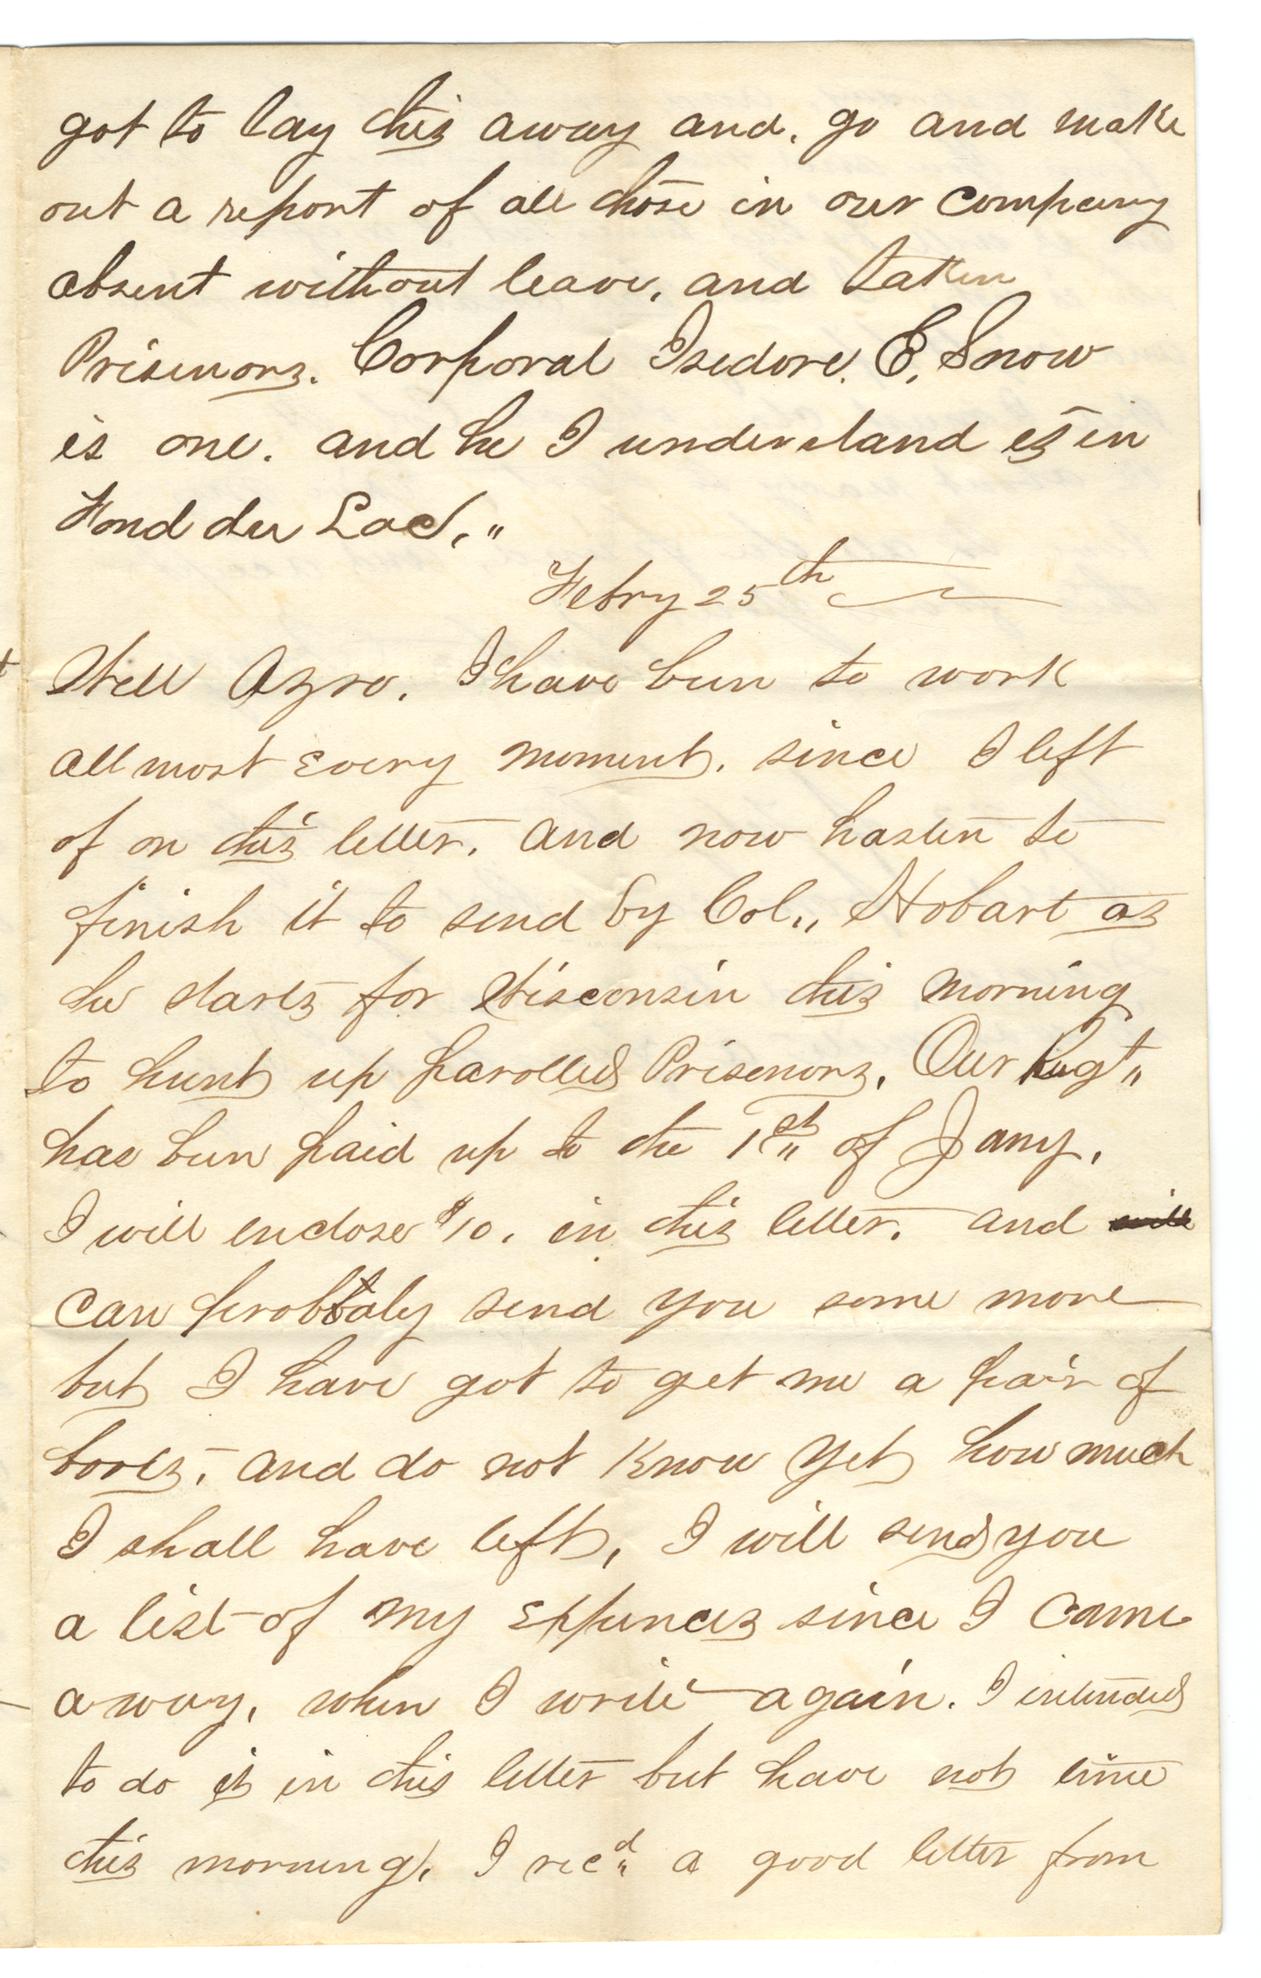 got to lay this away and. go and make
out a report of all those in our company
absent without leave, and taken
Prisenors. Corporal Isedore. E. Snow
is one. and he I understand is in
Fond du Lac,"
Febry 25th
Well Azro. I have bun to work
all most every moment. since I left
of on this letter. and now hasten to
finish it to send by Col,, Hobart as
he starts for Wisconsin this morning
to hunt up parolled Prisenors, Our Regt"
has bun paid up to the 1st" of Jany,
I will enclose $10. in this letter. and will
can probbaly send you some more
but I have got to get me a pair of
boots, and do not know yet how much
I shall have left, I will send you
a list of my expences since I came
away, when I write again. I intended
to do it in this letter but have not time
this morning, I recd" a good letter from